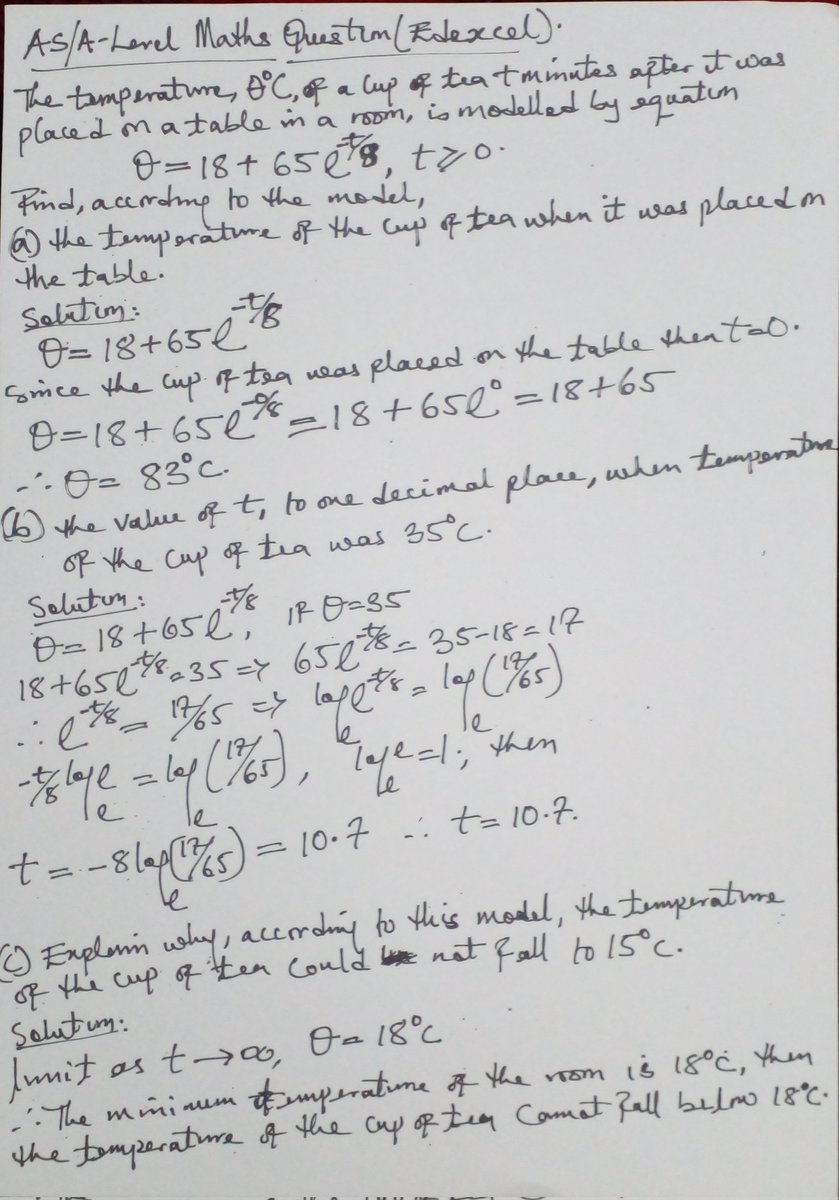 AS/A-Level Maths Question (Edexcel).
The temperature, θ°C, of a cup of tea t minutes after it was
placed on a table in a room, is modelled by equation
θ = 18 + 65e^(-t/8), t ⩾ 0.
Find, according to the model,
(a) the temperature of the cup of tea when it was placed on
the table.
Solution:
θ = 18 + 65e^(-t/8)
Since the cup of tea was placed on the table then t=0.
θ = 18 + 65e^(-0/8) = 18 + 65e^0 = 18 + 65
∴ θ = 83°C.
(b) the value of t, to one decimal place, when temperature
of the cup of tea was 35°C.
Solution:
θ = 18 + 65e^(-t/8), IF θ=35
18 + 65e^(-t/8) = 35 => 65e^(-t/8) = 35-18 = 17
∴ e^(-t/8) = 17/65 => log_e e^(-t/8) = log_e (17/65)
-t/8 log_e e = log_e (17/65), log_e e = 1; then
t = -8 log_e (17/65) = 10.7 ∴ t = 10.7.
(c) Explain why, according to this model, the temperature
of the cup of tea could not fall to 15°C.
Solution:
limit as t → ∞, θ = 18°C
∴ The minimum temperature of the room is 18°C, then
the temperature of the cup of tea cannot fall below 18°C.